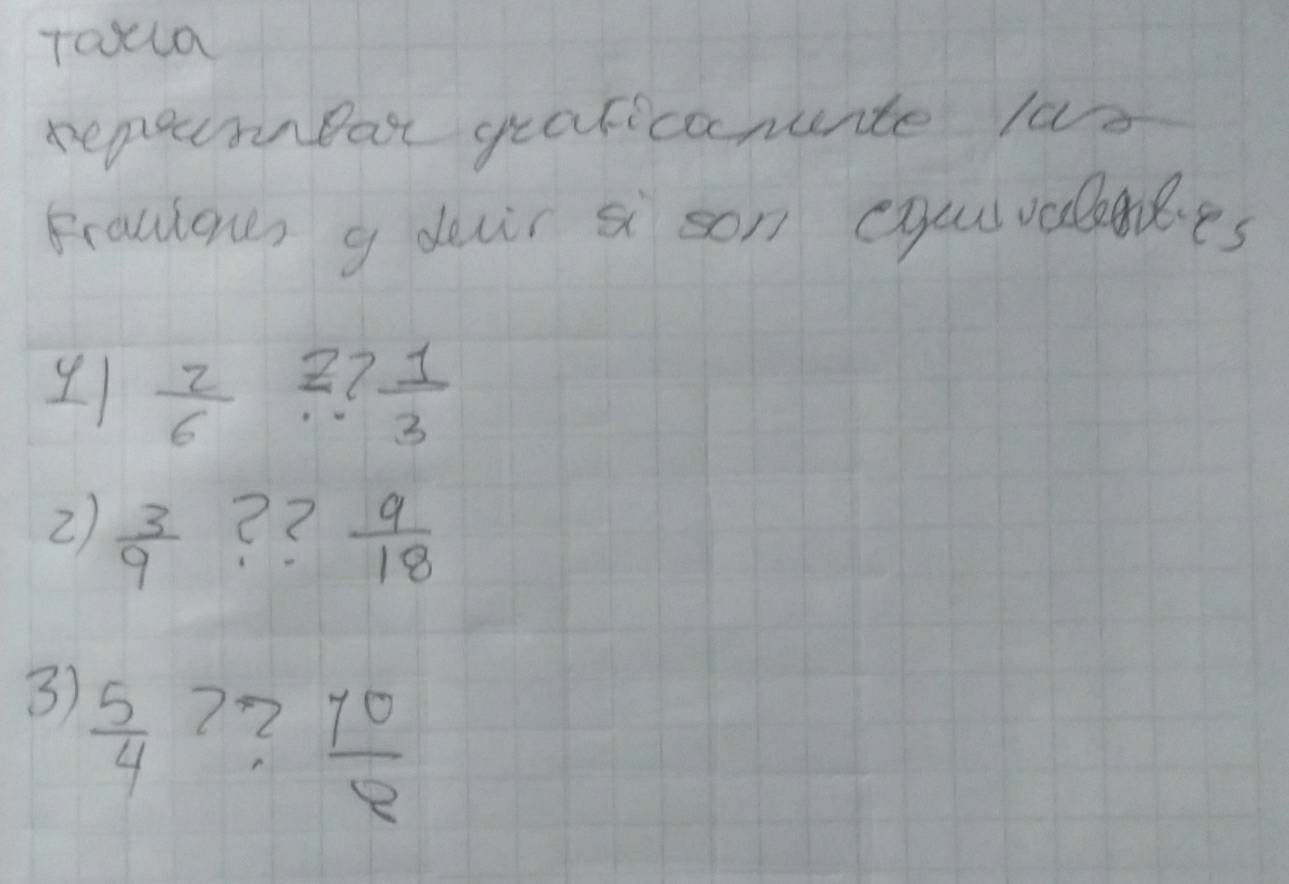 Tarea
representar graficamente las
Fracciones y decir si son equivalentes
1) 2/6 ?? 1/3
2) 3/9 ?? 9/18
3) 5/4 ?? 10/8